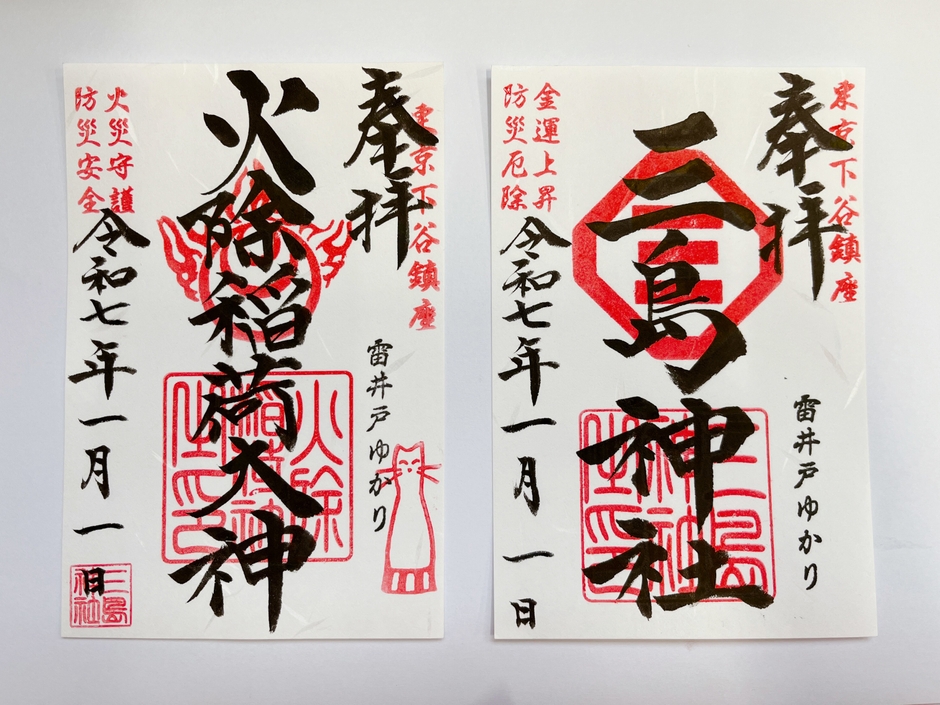 東京下谷鎮座
奉拝
雷井戸ゆかり
火除稲荷大神
火災守護
防災安全
令和七年一月一日
三島神社
東京下谷鎮座
奉拝
雷井戸ゆかり
三島神社
金運上昇
防災厄除
令和七年一月一日